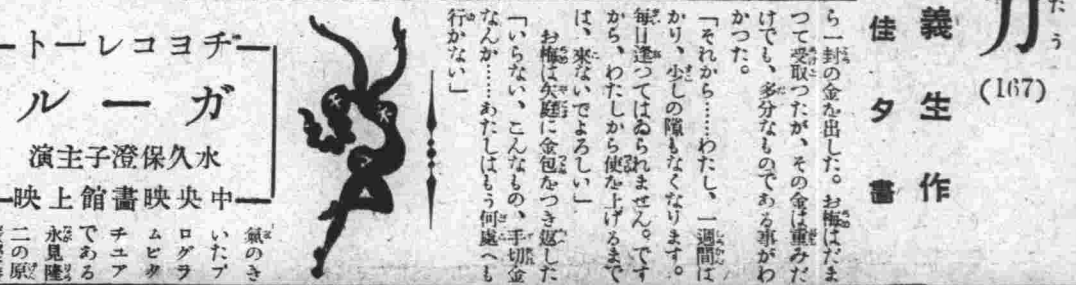 刀
たう
(167)
義生作
佳夕畵
ら一封の金を出した。お梅はだま
つて受取つたが、その金は重みだ
けでも、多分なものである事がわ
かつた。
「それから……わたし、一週間は
かり、少しの隙もなくなります。
毎日逢つてはゐられません。です
から、わたしから使を上げるまで
は、來ないでよろしい」
お梅は矢庭に金包をつき返した
「いらない、こんなもの、手切金
なんか……あたしはもう何處へも
行かない」
チヨコレート
ガール
水久保澄子主演
中央映畫館上映
氣のき
いたプ
ログラ
ムピク
チユア
である
永見隆
二の原